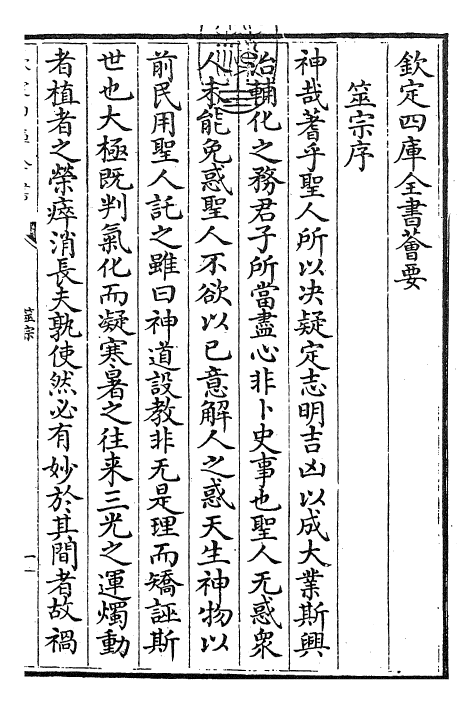 欽定四庫全書薈要
筮宗序
神哉蓍乎聖人所以決疑定志明吉凶以成大業斯興
治輔化之務君子所當盡心非卜史事也聖人无惑衆
人未能免惑聖人不欲以已意解人之惑天生神物以
前民用聖人託之雖曰神道設教非无是理而矯誣斯
世也大極既判氣化而凝寒暑之往来三光之運燭動
者植者之榮瘁消長夫孰使然必有妙於其間者故禍
筮宗
一